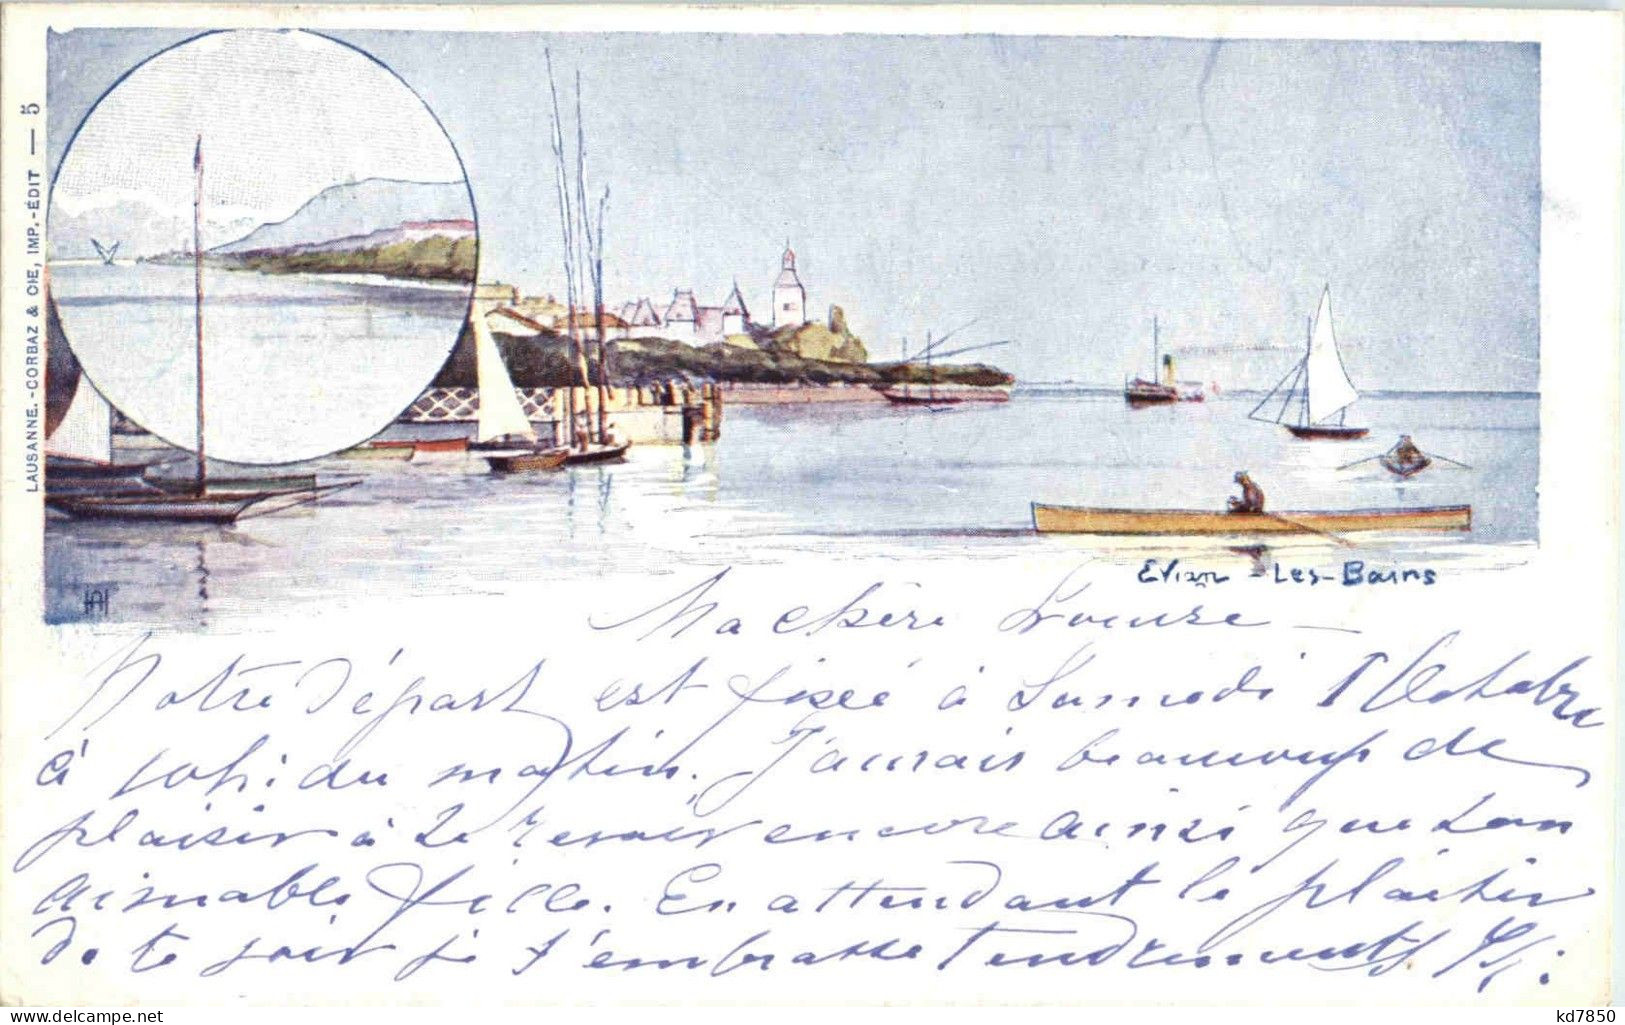 LAUSANNE. - CORBAZ & CIE, IMP.-ÉDIT — 5
HA
Evian - Les - Bains
Ma chère Louise —
Notre départ est fixée à Samedi 1 Octobre
à du matin. J'aurais beaucoup de
plaisir à te revoir encore ainsi que ton
aimable fille. En attendant le plaisir
de te voir je t'embrasse tendrements
www.delcampe.net
kd7850